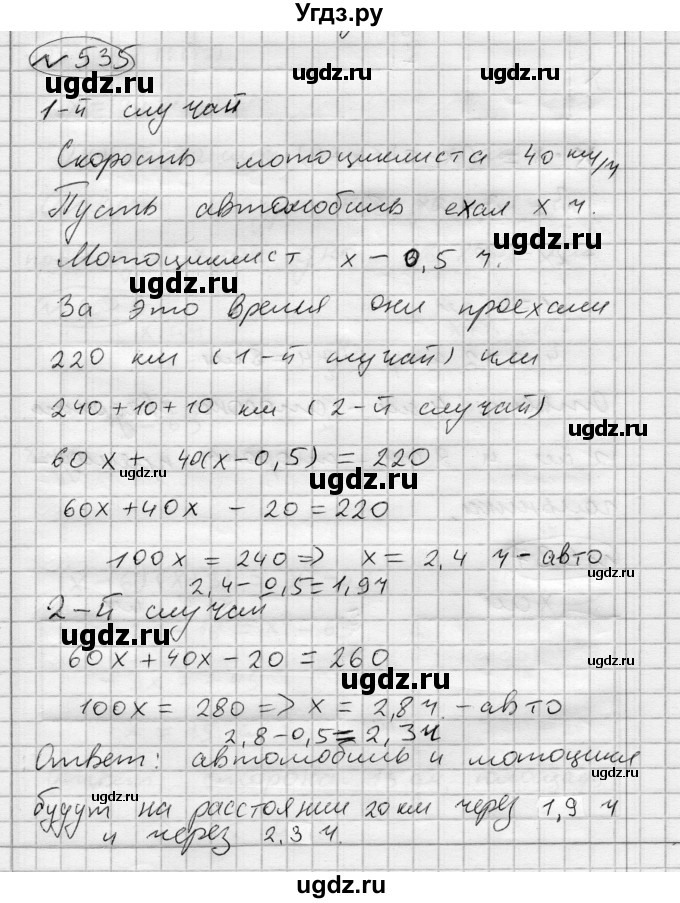 Угдз.ру
N 535
ugdz.ru ugdz.ru
1-й случай
Скорость мотоциклиста 40 км/ч
Пусть автомобиль ехал x ч.
ugdz.ru
Мотоциклист x - 0,5 ч.
ugdz.ru
За это время они проехали
220 км (1-й случай) или
ugdz.ru ugdz.ru
240+10+10 км (2-й случай)
60x + 40(x-0,5) = 220
ugdz.ru ugdz.ru
60x+40x - 20 = 220
100x = 240 => x = 2,4 ч - авто
ugdz.ru
2,4-0,5=1,9ч
ugdz.ru
2-й случай
ugdz.ru
60x+40x-20 = 260
ugdz.ru ugdz.ru
100x = 280 => x = 2,8ч. - авто
2,8-0,5=2,3ч
Ответ: автомобиль и мотоцикл
ugdz.ru ugdz.ru
будут на расстоянии 20 км через 1,9 ч
ugdz.ru ugdz.ru
и через 2,3 ч.
ugdz.ru
ugdz.ru